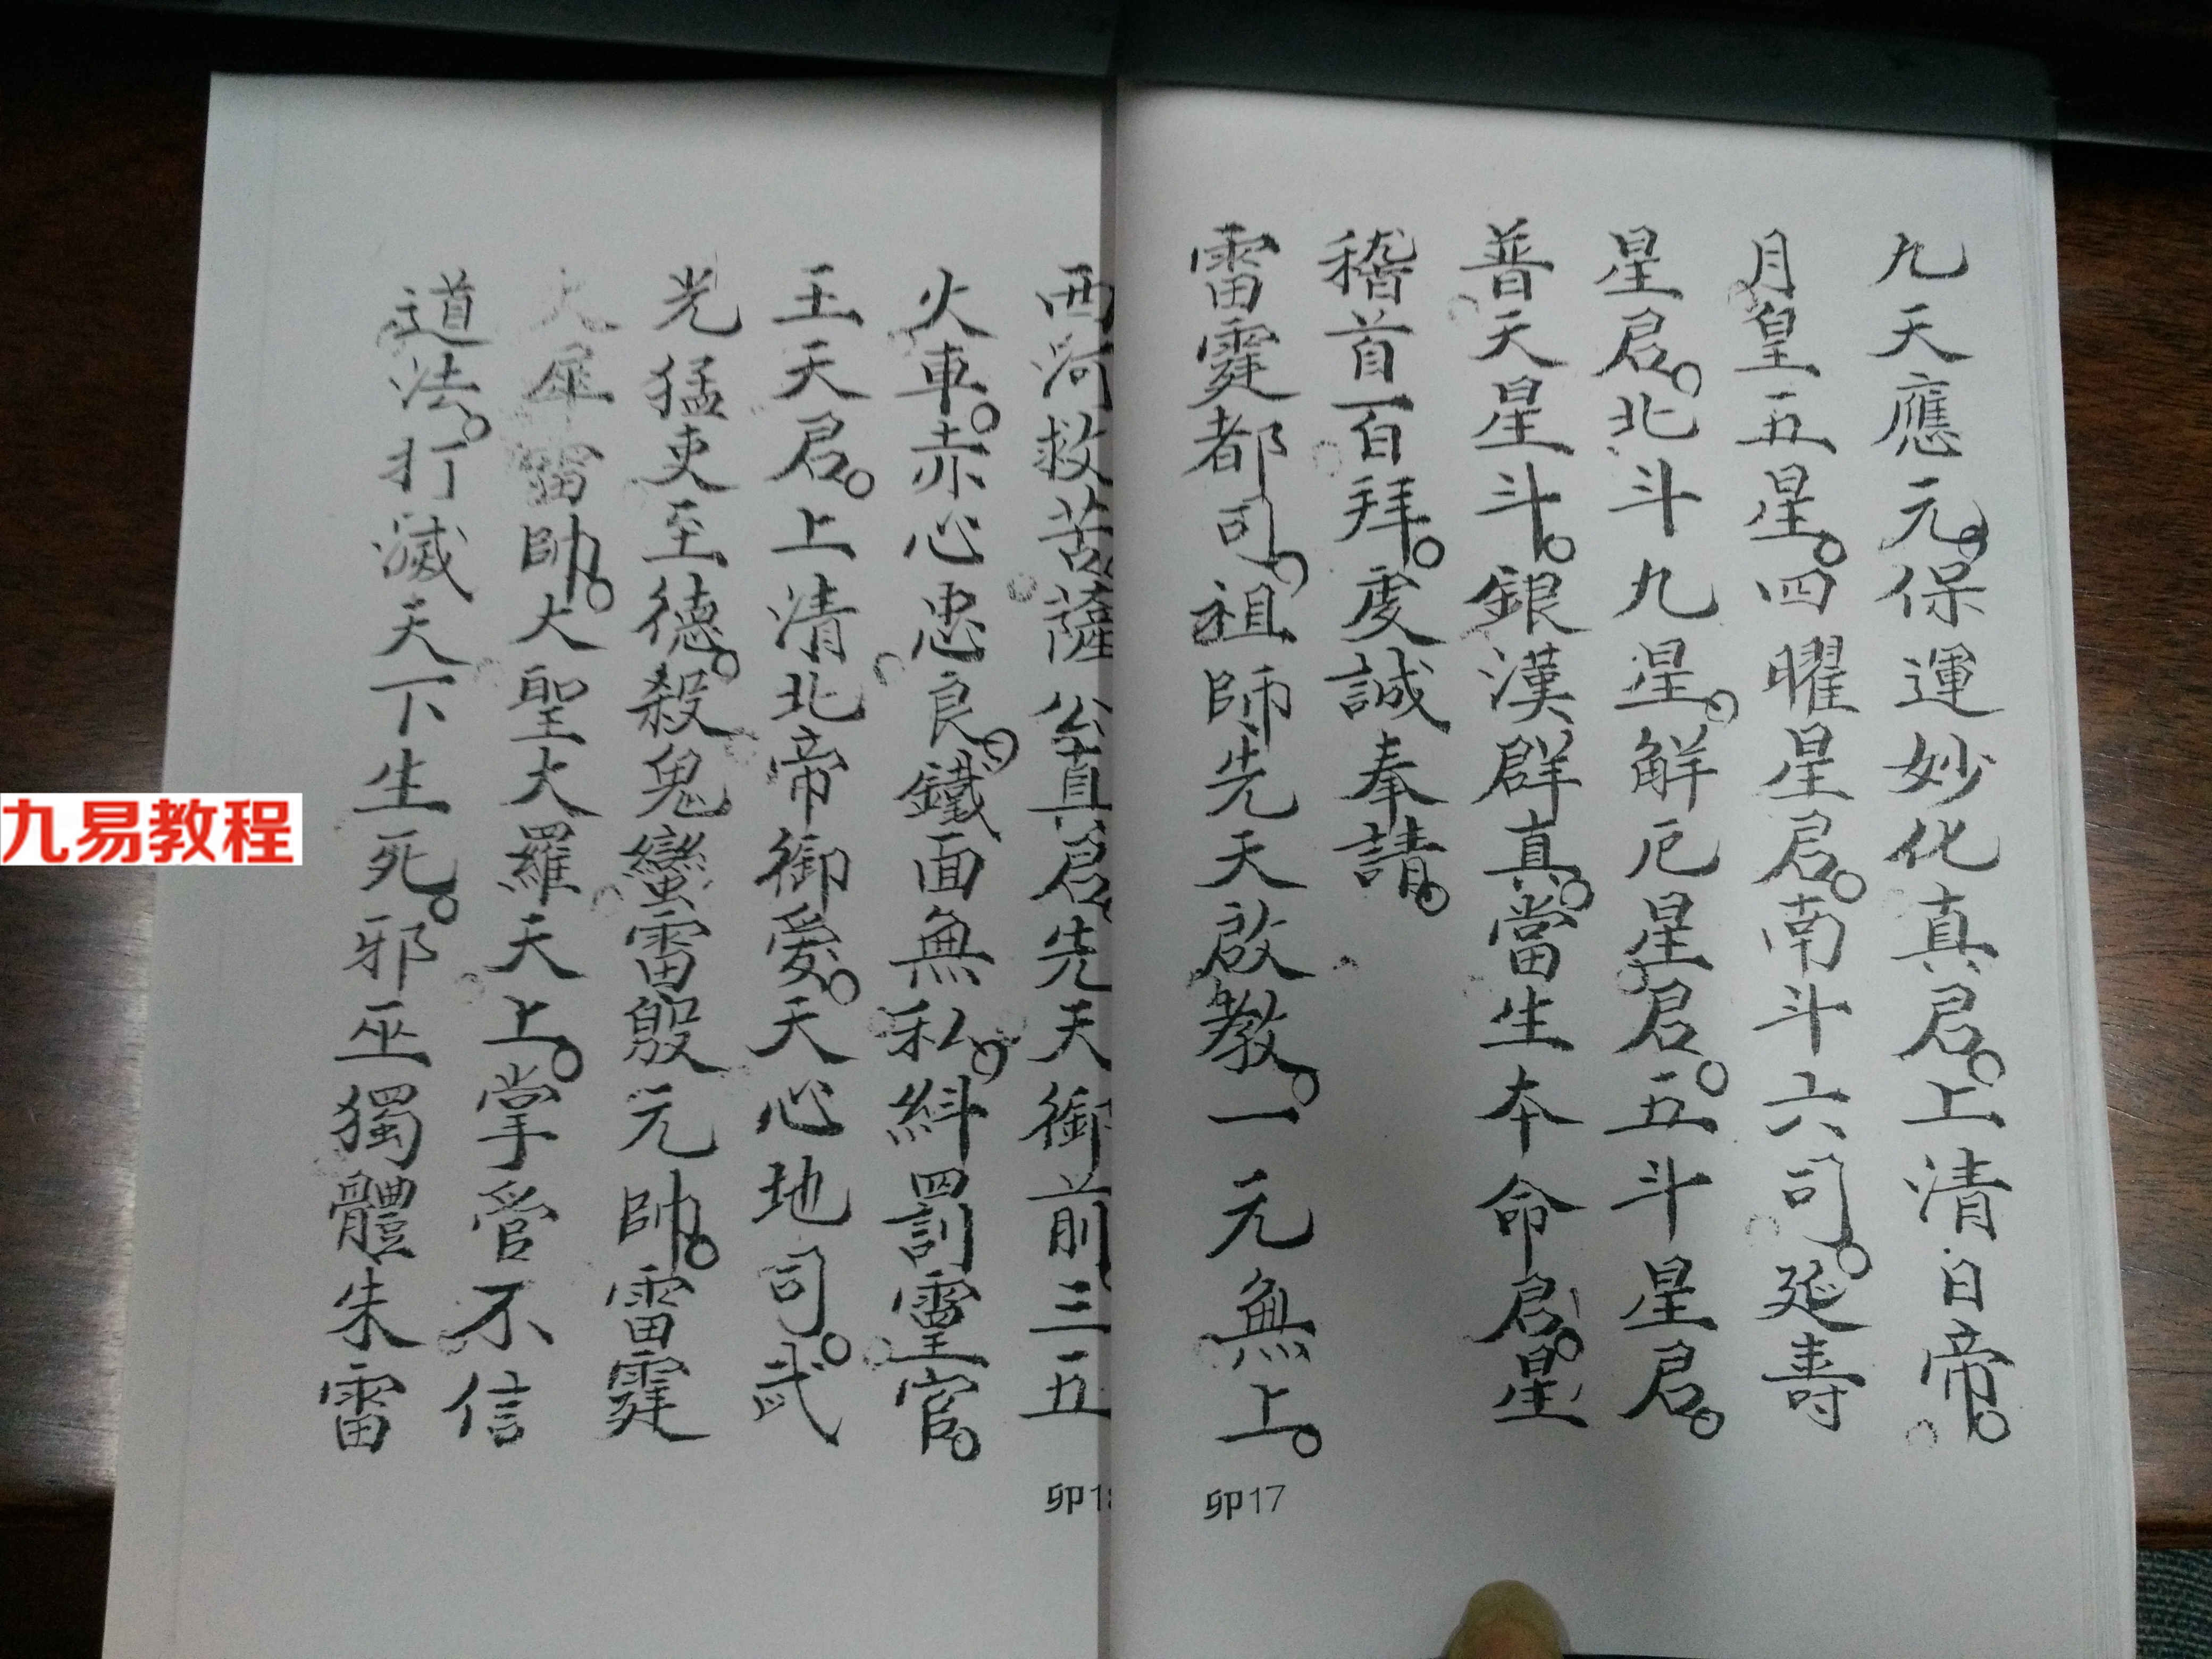 九天應元。保運妙化真君。上清日帝。
月皇五星。四曜星君。南斗六司。延壽
星君。北斗九星。解厄星君。五斗星君。
普天星斗。銀漢群真。當生本命君。星
稽首百拜。虔誠奉請。
雷霆都司。祖師先天啟教。一元無上。
卯17
西河救苦薩公真君。先天御前。三五
火車。赤心忠良。鐵面無私。糾罰靈官。
王天君。上清北帝御愛。天心地司。武
光猛吏至德。殺鬼蠻雷殷元帥。雷霆
犀雷帥。大聖大羅天上。掌管不信
道法。打滅天下生死。邪巫獨體朱雷
卯1
九易教程